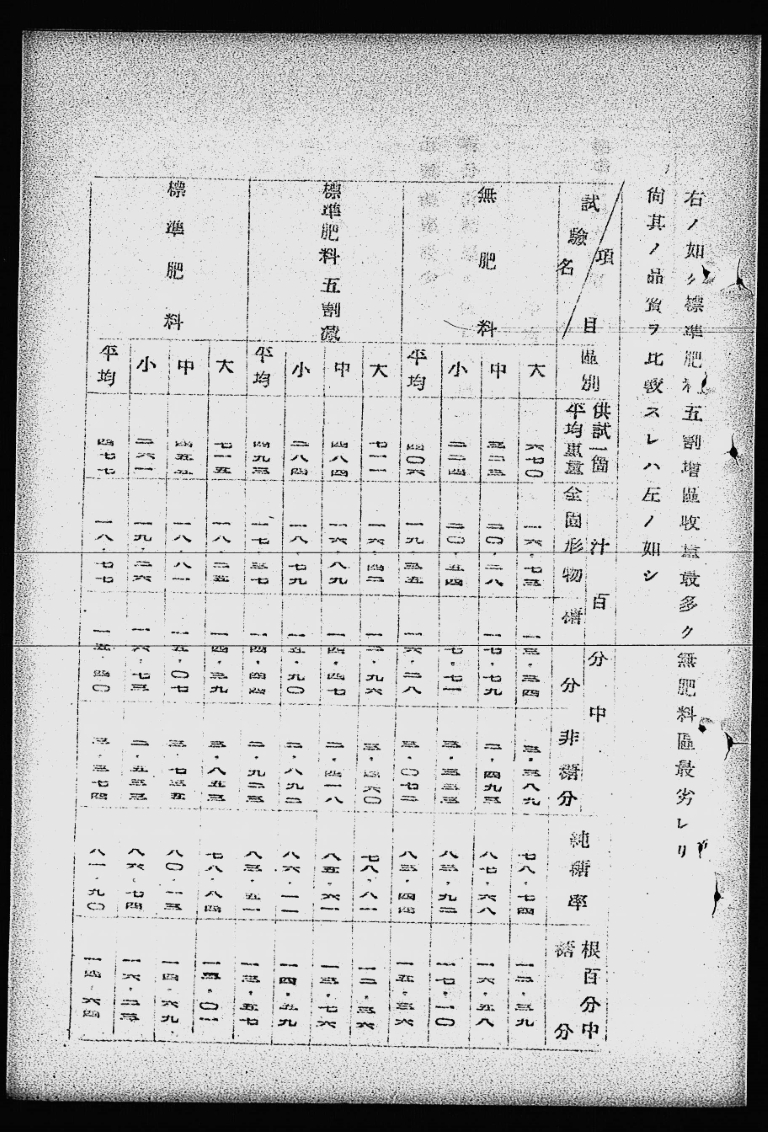 右ノ如ク標準肥料五割增區收量最多ク無肥料區最劣レリ
尙其ノ品質ヲ比較スレハ左ノ如シ
試驗名 項目 區別 供試一箇平均重量 汁百分中 全固形物 糖分 非糖分 純糖率 根百分中糖分
無肥料
大 六七〇 一六・七三 一三・三四 三・三八九 七八・七四 一二・三九
中 三二三 二〇・二八 一七・七九 二・四九三 八七・六八 一六・五八
小 二二四 二〇・五四 一七・七一 三・三三三 八三・九二 一七・一〇
平均 四〇六 一九・三五 一六・二八 三・〇七二 八三・四四 一五・三六
標準肥料五割減
大 七一一 一六・四二 一二・九六 三・四六〇 七八・八一 一二・三六
中 四八四 一六・八九 一四・四七 二・四一八 八五・六一 一三・七六
小 二八四 一八・七九 一五・九〇 二・八九二 八六・一一 一四・五九
平均 四九三 一七・三七 一四・四四 二・九二三 八三・五一 一三・五七
標準肥料
大 七一五 一八・二五 一四・三九 三・八五三 七八・八四 一三・〇一
中 四五五 一八・八一 一五・〇七 三・七三五 八〇・一三 一四・六九
小 二六一 一九・二六 一六・七三 二・五三三 八六・七四 一六・二三
平均 四七七 一八・七七 一五・四〇 三・三七四 八一・九〇 一四・六四